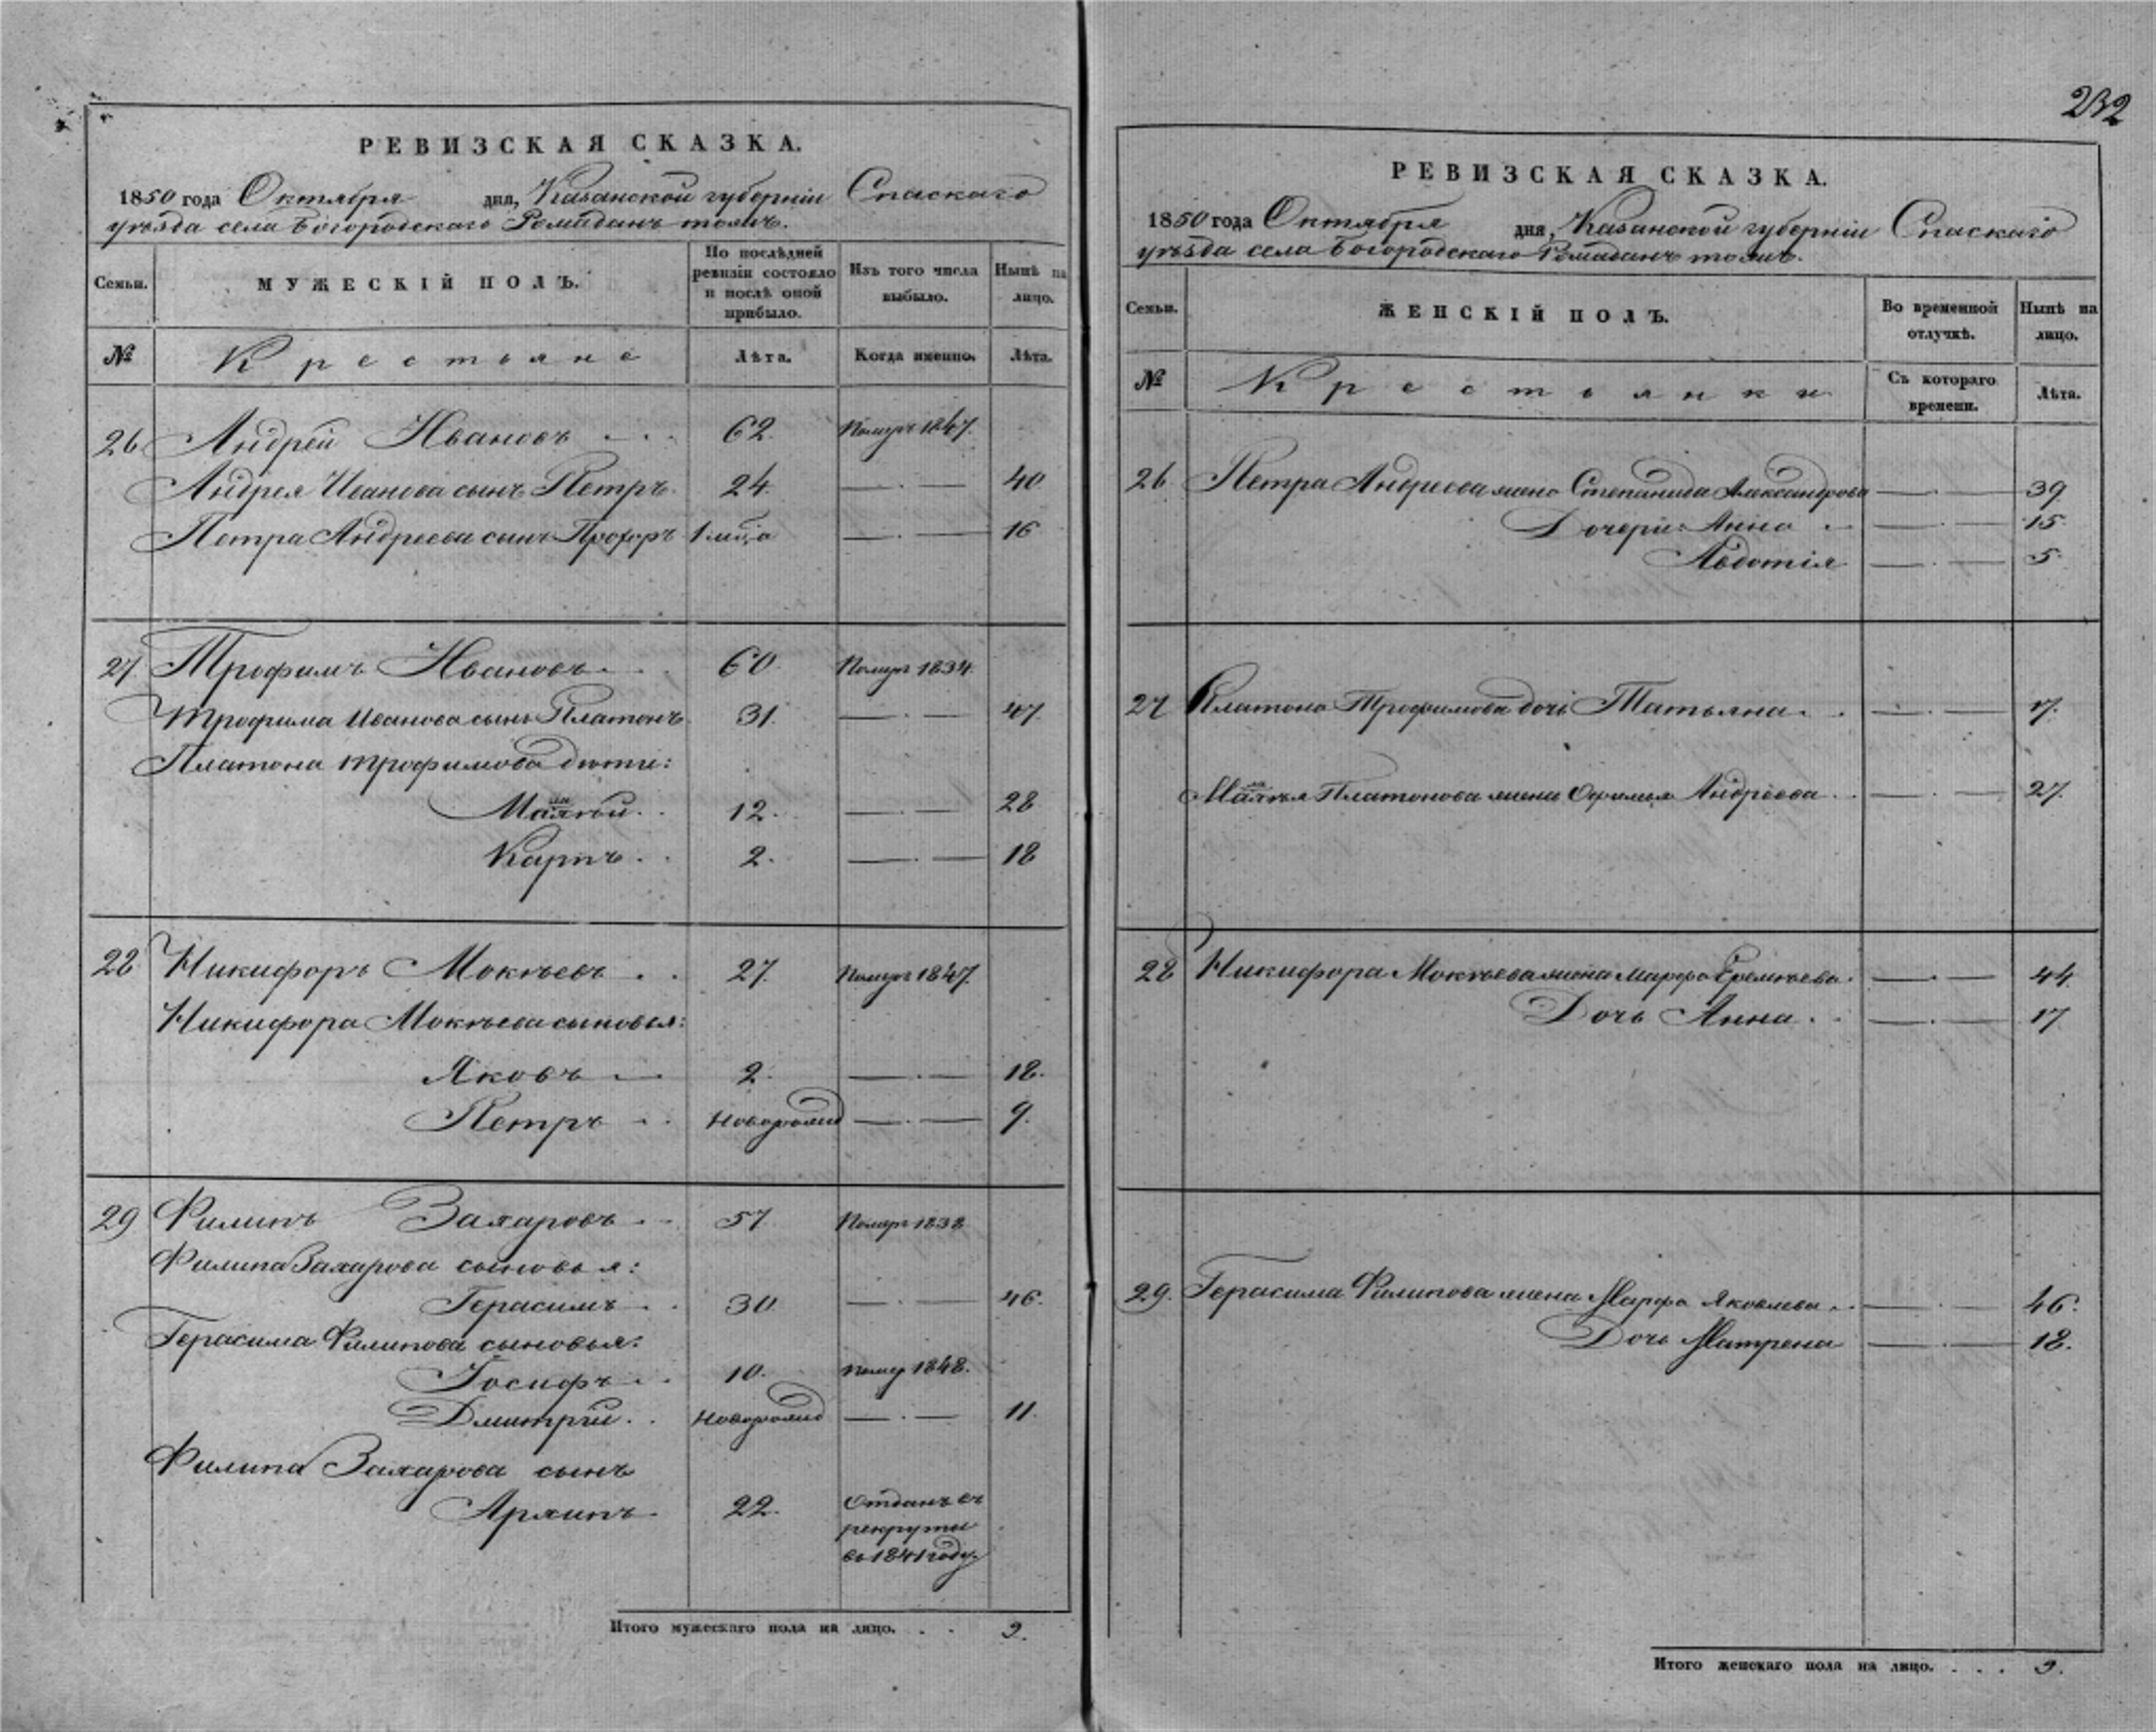 232
РЕВИЗСКАЯ СКАЗКА.
1850 года Октября дня, Казанской губерніи Спаскаго
уѣзда села Богородскаго Ромадань тожъ.
Семьи. МУЖЕСКІЙ ПОЛЪ. По послѣдней ревизіи состояло и послѣ оной прибыло. Изъ того числа выбыло. Нынѣ на лицо.
№ Крестьяне Лѣта. Когда именно. Лѣта.
26 Андрей Ивановъ 62. Померъ 1847.
Андрея Иванова сынъ Петръ 24. 40
Петра Андреева сынъ Прохоръ 1 мѣца 16
27. Трофимъ Ивановъ 60. Померъ 1834.
Трофима Иванова сынъ Платонъ 31. 47.
Платона Трофимова дѣти:
12. 28
Карпъ 2. 18
28 Никифоръ Мокѣевъ 27. Померъ 1847.
Никифора Мокѣева сыновья:
Яковъ 2. 18.
Петръ Новорожд 9.
29 Филипъ Захаровъ 57 Померъ 1838
Филипа Захарова сыновья:
Герасимъ 30 46.
Герасима Филипова сыновья:
Іосифъ 10. Помер 1848.
Дмитрій Новорожд 11.
Филипа Захарова сынъ
Архипъ 22. Отданъ въ
рекруты
въ 1841 году.
Итого мужескаго пола на лицо. 9.
РЕВИЗСКАЯ СКАЗКА.
1850 года Октября дня, Казанской губерніи Спаскаго
уѣзда села Богородскаго Ромадань тожъ.
Семьи. ЖЕНСКІЙ ПОЛЪ. Во временной отлучкѣ. Нынѣ на лицо.
№ Крестьянки Съ котораго времени. Лѣта.
26 Петра Андреева жена Степанида Александрова 39
Дочери: Анна 15.
Авдотія 5.
27 Платона Трофимова дочь Татьяна 17.
Платонова жена Андреева 27.
28 Никифора Мокѣева жена Марфа Еремѣева 44
Дочь Анна 17
29. Герасима Филипова жена Марфа Яковлева 46.
Дочь Матрена 18.
Итого женскаго пола на лицо. 9.